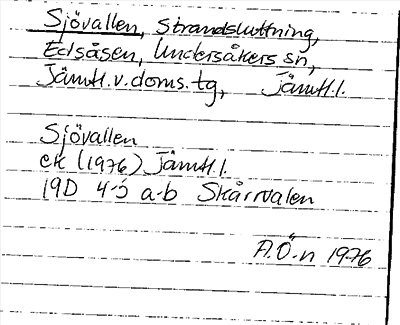 Sjövallen, Strandsluttning,
Edsåsen, Undersåkers sn,
Jämtl.v.doms.tg, Jämtl.l.
Sjövallen
ek (1976) Jämtl.l.
19D 4-5 a-b Skårvalen
A.Ö-n 1976